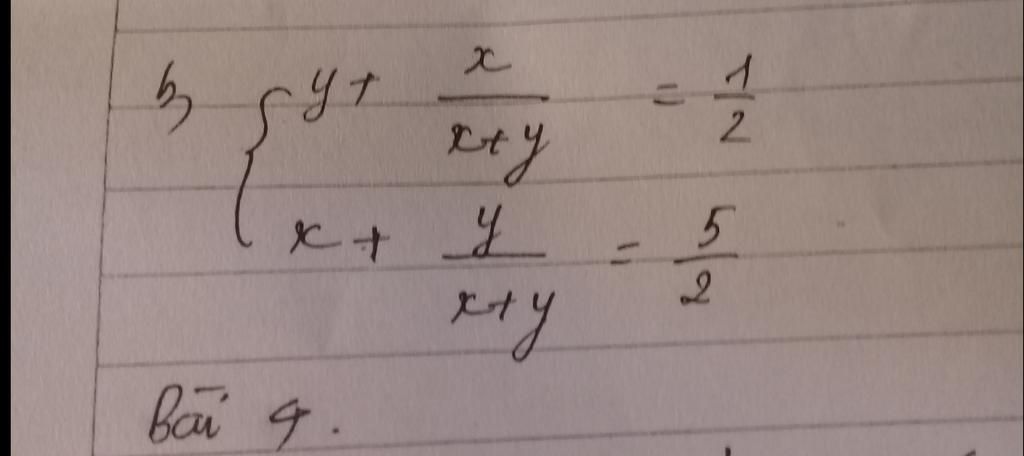 b, { y + x/(x+y) = 1/2
x + y/(x+y) = 5/2
Bài 4.